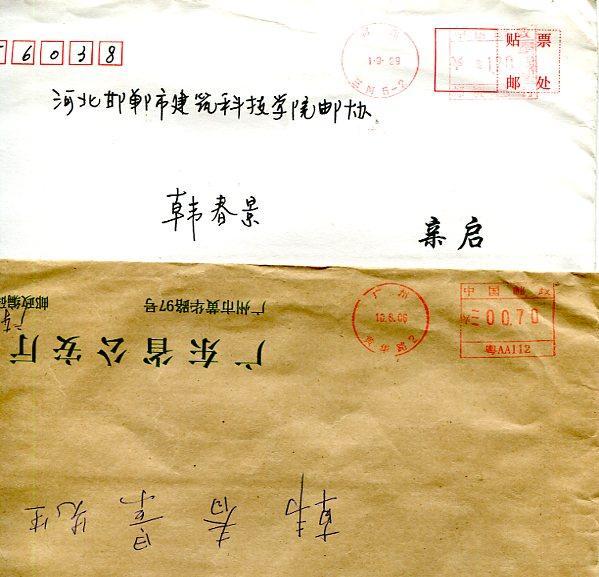 6038
贴 票
邮 处
河北邯郸市建筑科技学院邮协
韩春景
亲启
广州
黄华路2
中国邮政
00.70
粤AA112
广东省公安厅
广州市黄华路97号
邮政编码
韩春景先生